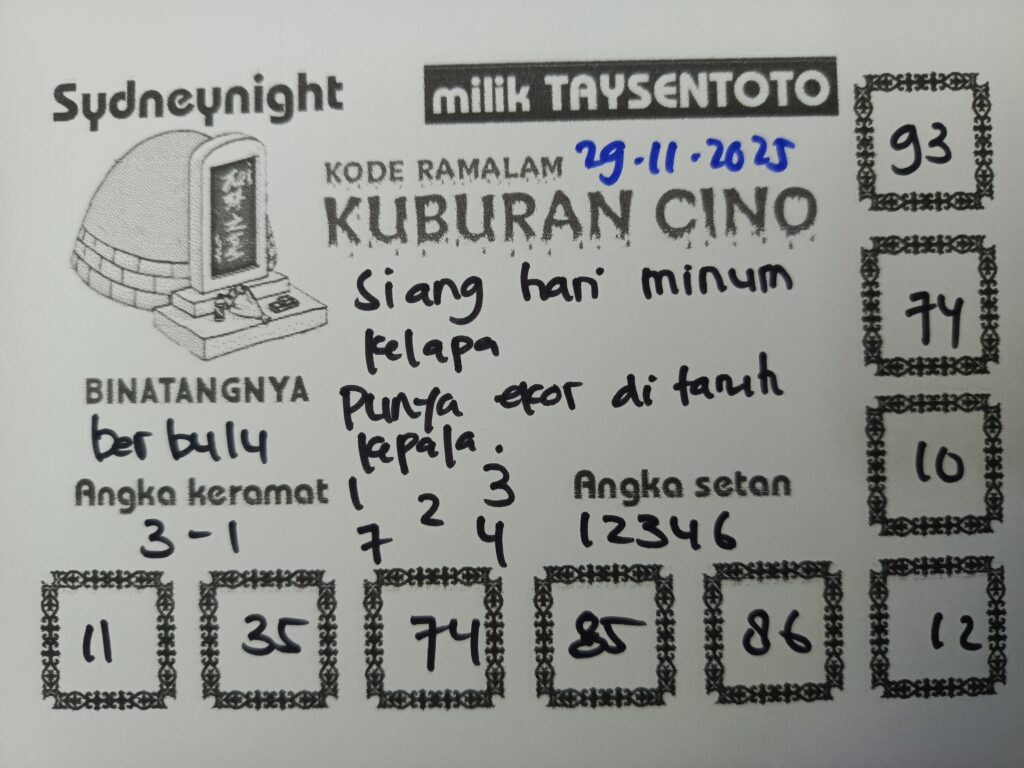 Sydneynight
milik TAYSENTOTO
KODE RAMALAM 29.11.2025
KUBURAN CINO
Siang hari minum
kelapa
Punya ekor di taruh
kepala.
BINATANGNYA
berbulu
Angka keramat
3-1
1 2 3
7 4
Angka setan
12346
93
74
10
11 35 74 85 86 12